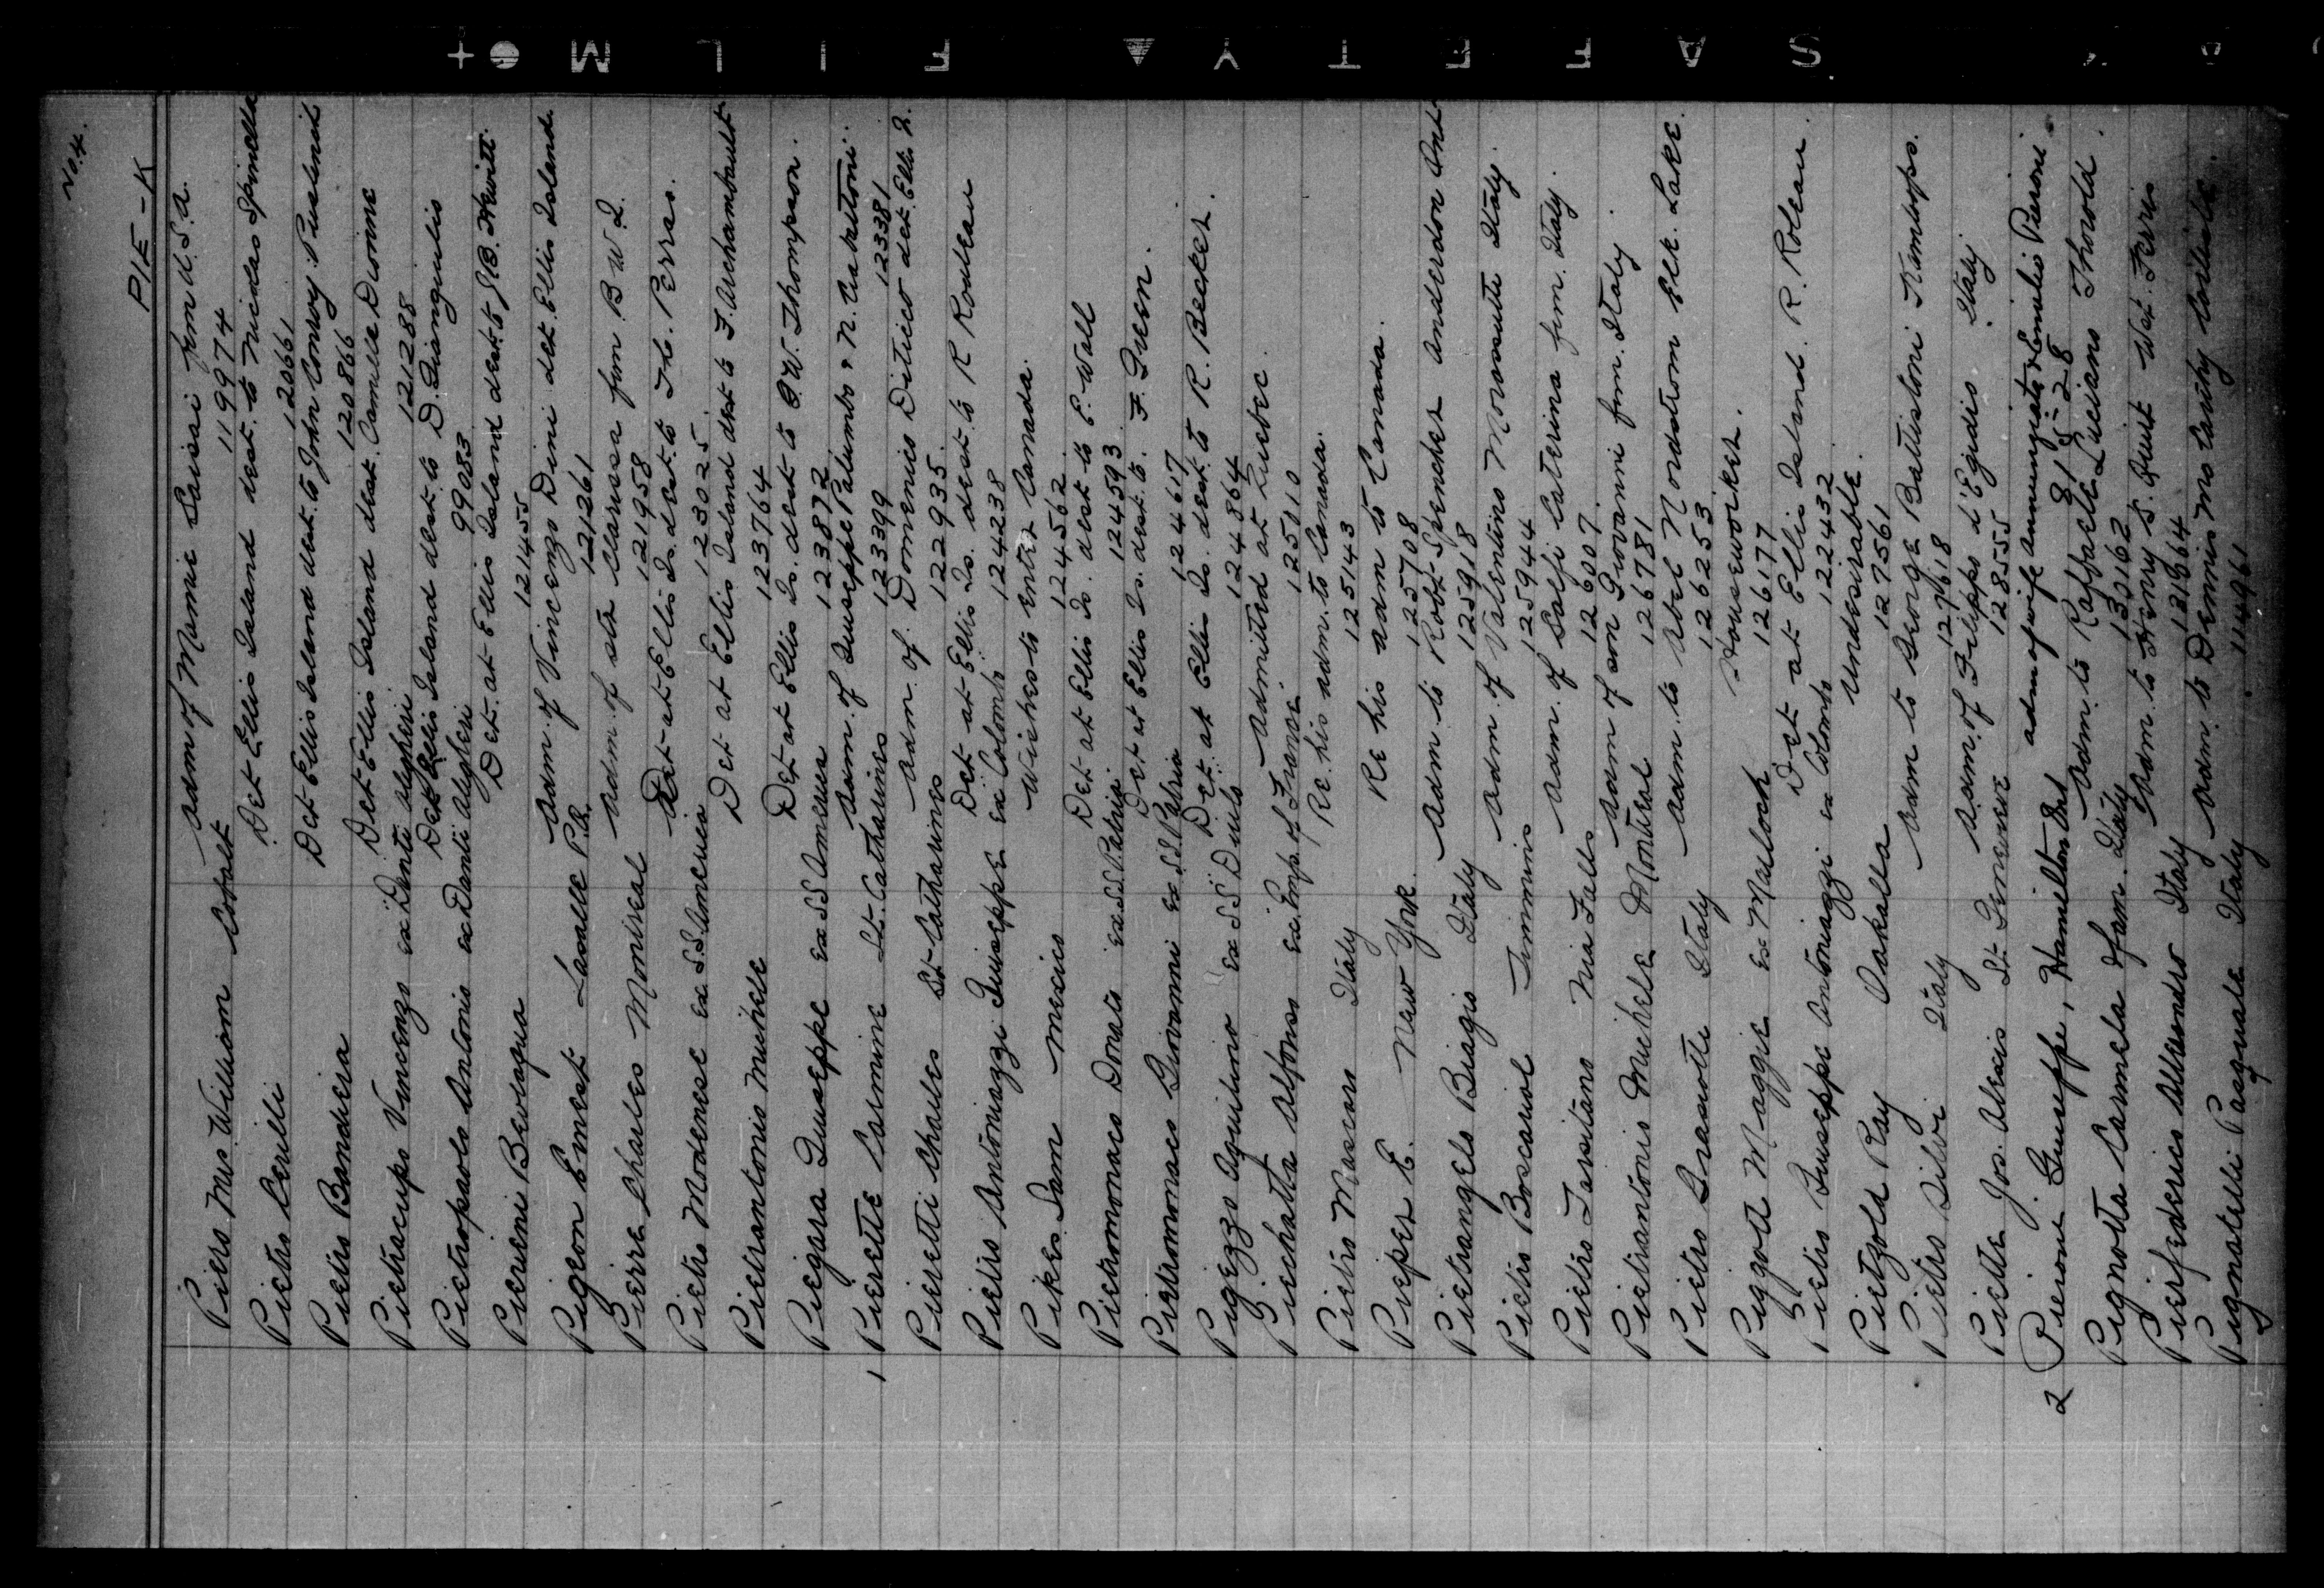 SAFETY FILM
No. 4.
PIE - K
Piers Mrs. William Cobalt Adm of Mamie Saisai from U.S.A.
119974
Pietro Cerilli Det Ellis Island dest. to Nicolas Spinella
12066
Pietro Bandiera Det Ellis Island dest. to John Conroy
120866
Pietracupa Vincenzo ex Dante Alighieri Det Ellis Island dest. Camille Dionne
121288
Pietropaolo Antonio ex Dante Alighieri Det Ellis Island dest. to D. Diangiulis
99083
Pierieni Bevilaqua Det. at Ellis Island dest. to J.B. Hewitt
121455
Pigeon Ernest Lasalle P.Q. Adm. of Vincenzo Dini det. Ellis Island
121261
Pierre Charles Montreal Adm. of str Clarissa from B.W.I.
121958
Pietro Modenese ex S.S. America Det at Ellis Is. dest. to Th. Perras.
123025
Pietrantonio Michele Det at Ellis Island dest to F. Archambault
123764
Piegara Giuseppe ex SS America Det at Ellis Is. dest to O.W. Thompson.
123872
1 Pierette Carmine St. Catharines Adm. of Giuseppe Palumbo & N.
123399 123381
Pieretti Charles St. Catharines Adm. of Domenico Ditieco det. Ellis I.
122935
Pietro Antoniazzi Giuseppe ex Colombo Det at Ellis Is. dest. to R Rouleau
124238
Pikes Sam Mexico Wishes to enter Canada.
124562
Pietromonaco Donato ex S.S. Patria Det at Ellis Is. dest to E. Wall
124593
Pietromonaco Giovanni ex S.S. Patria Det at Ellis Is. dest. to F. Green.
124617
Pigezzo Aquilino ex SS Duilo Det. at Ellis Is. dest to R. Becker.
124864
Piechatta Alfonse ex Emp. of France Admitted at Quebec.
125010
Pietro Mascaro Italy Re. his adm. to Canada.
125143
Pieper E. New York Re his adm to Canada.
125708
Pietrangelo Biagio Italy Adm to Robt. Spencer Anderdon Ont
125918
Pietro Boscariol Timmins Adm of Valentino Moronutti Italy.
125944
Pietro Tarsitano Nia Falls Adm. of Salfi Caterina from Italy.
126007
Pietrantonio Michele Montreal Adm of son Giovanni from Italy.
126781
Pietro Brasiotti Italy Adm. to Abel Nordstrom Elk Lake.
126253
Piggott Maggie ex Matlock Houseworker.
126177
Pietro Giuseppe Antoniazzi ex Colombo Det at Ellis Island. R. Roleau.
122432
Pietzold Ray Oakalla Undesirable.
127561
Pietro Silvi Italy Adm to George Battistoni Kamloops.
127618
Piette Jos. Alexis St. Genevieve Adm. of Filippo d'Egidio Italy
128555
2 Pierone Giuseppe, Hamilton Ont adm of wife Annunziata & Emilio Pieroni
81528
Pignotta Carmela & fam. Italy Adm. to Raffaele Luciano Thorold.
130162
Pierfederico Allesandro Italy Adm to Henry S. Quirt Wat. Ferris
131664
Pignatelli Pasquale Italy Adm. to Dennis McCarthy Coniston.
114961